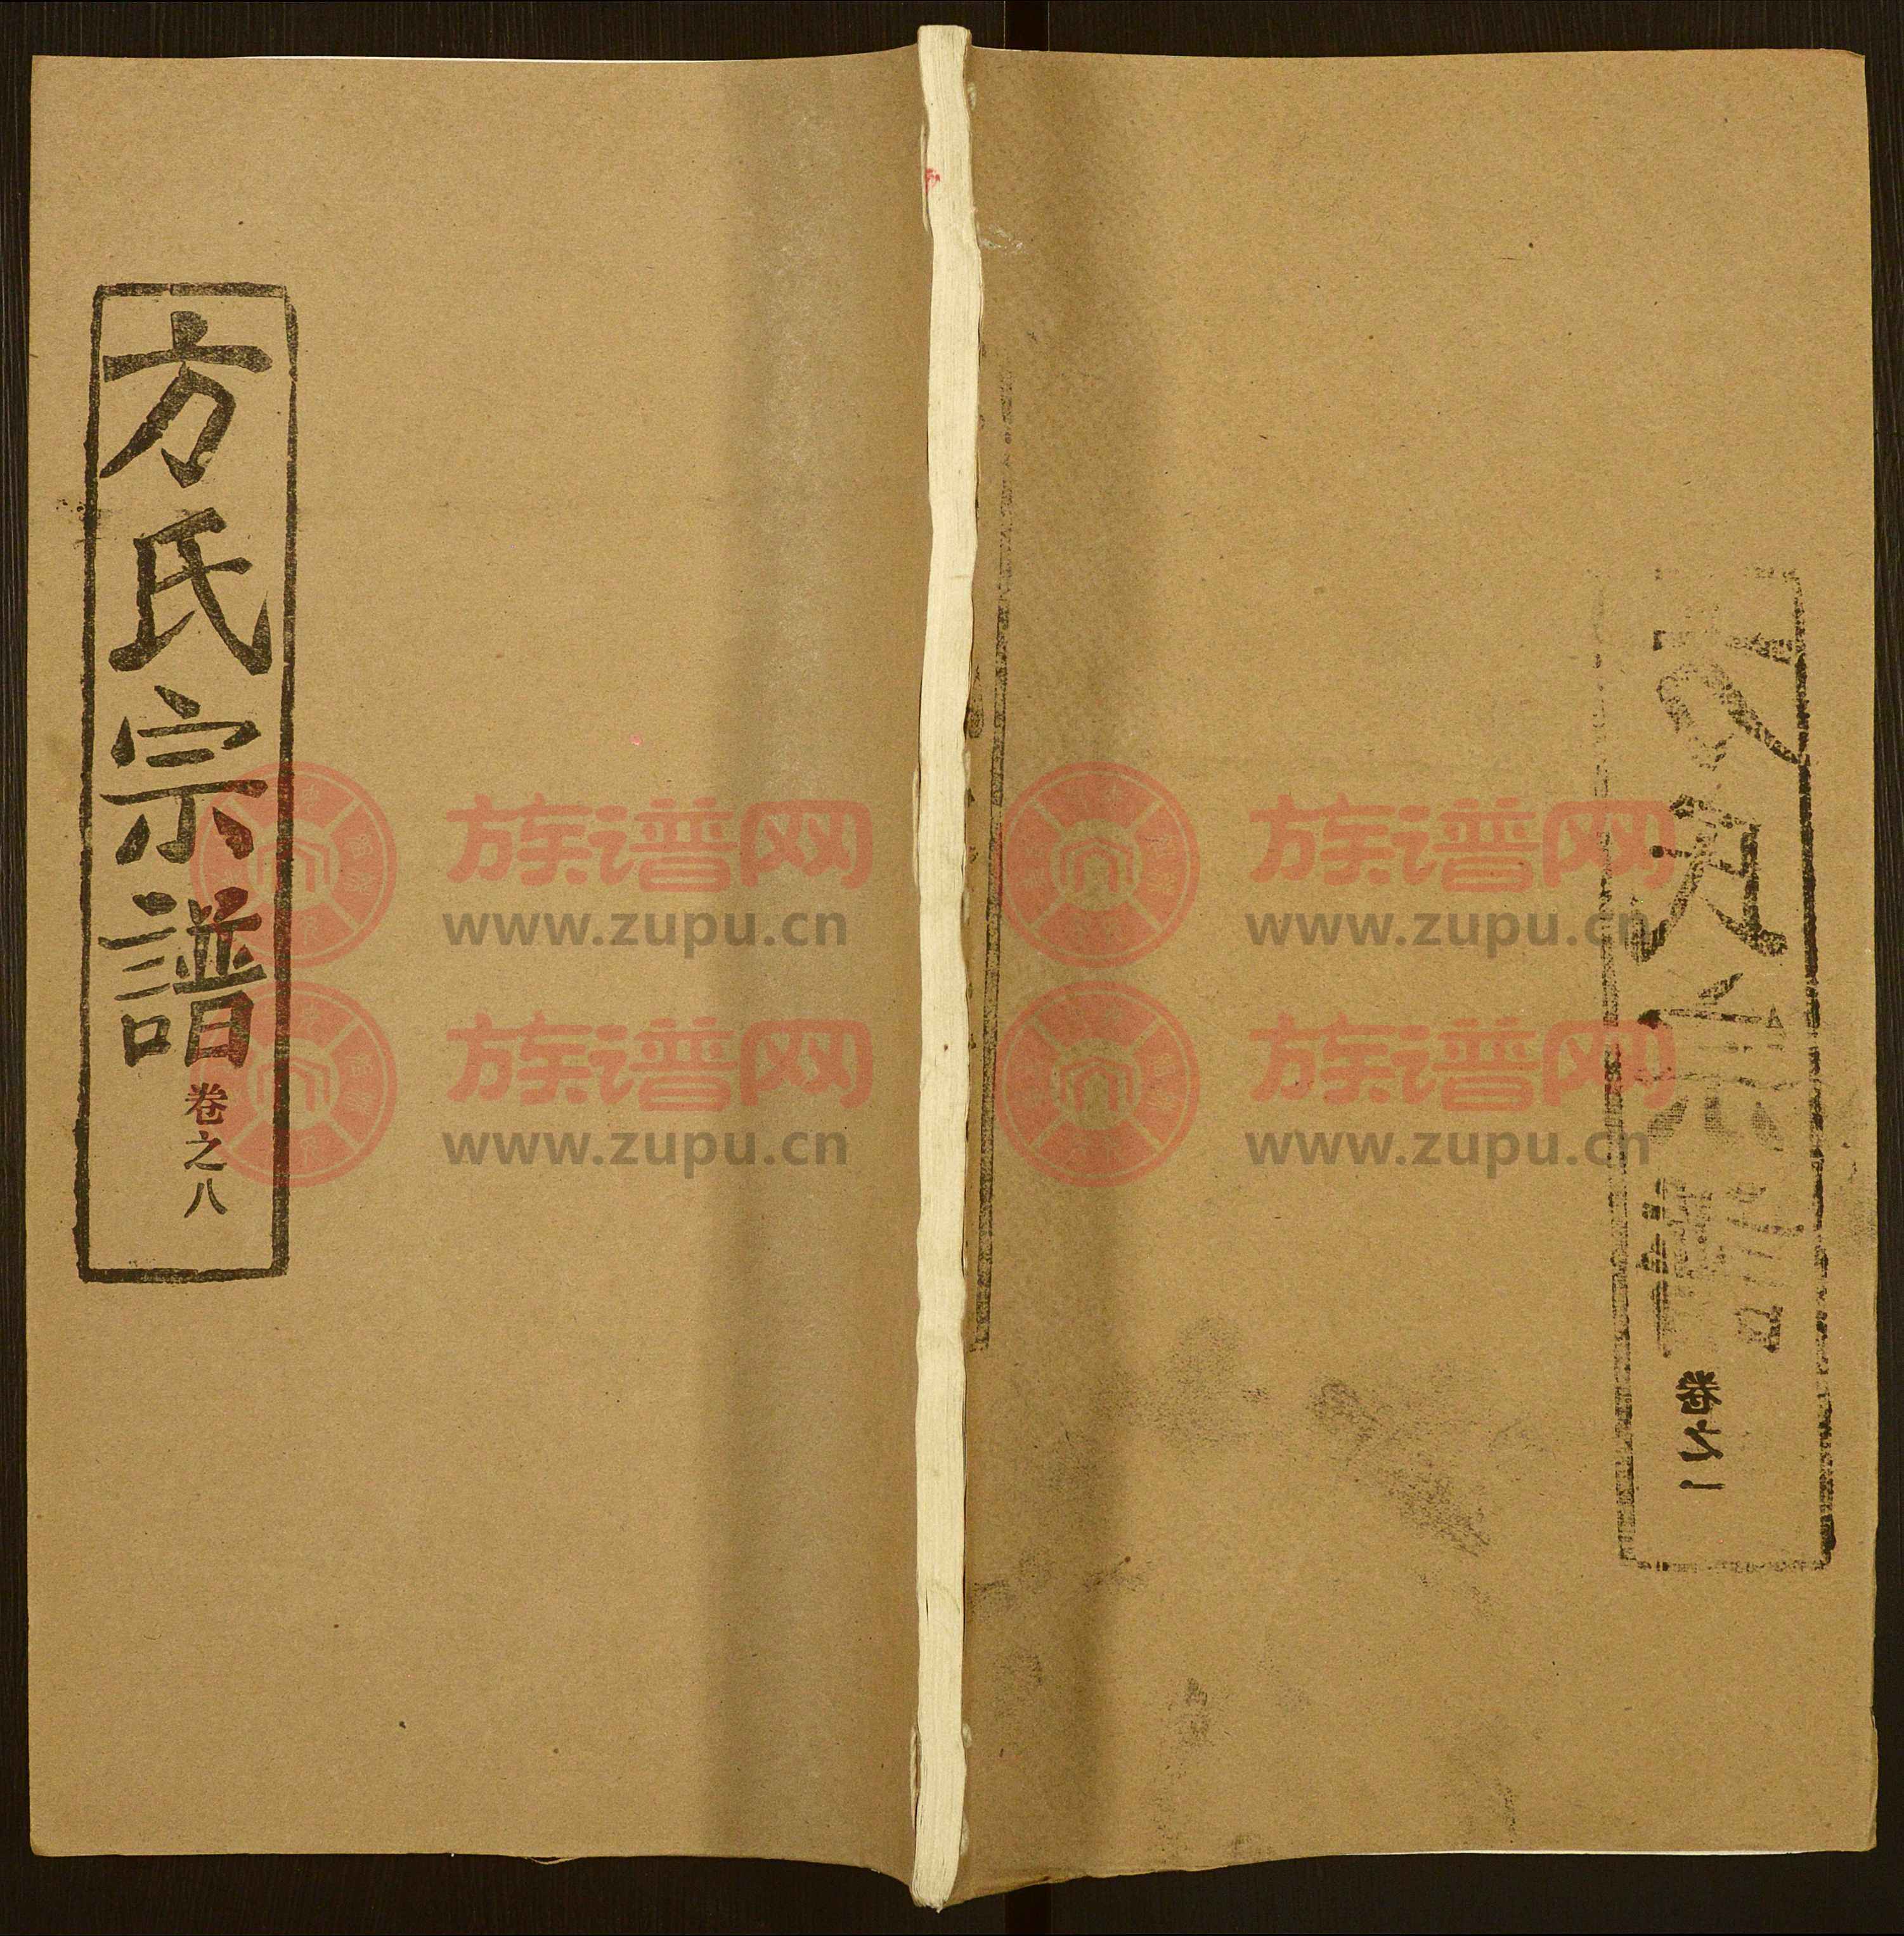 方氏宗譜
卷之八
族谱网
www.zupu.cn
族谱网
www.zupu.cn
族谱网
www.zupu.cn
族谱网
www.zupu.cn